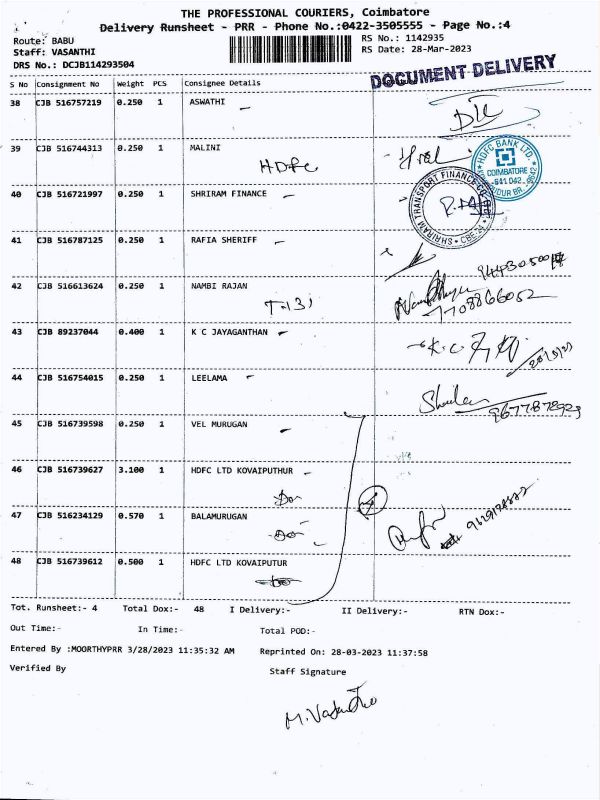 THE PROFESSIONAL COURIERS, Coimbatore
Delivery Runsheet - PRR - Phone No.:0422-3505555 - Page No.:4
Route: BABU
RS No.: 1142935
Staff: VASANTHI
RS Date: 28-Mar-2023
DRS No.: DCJB114293504
DOCUMENT DELIVERY
S No Consignment No Weight PCS Consignee Details
38 CJB 516757219 0.250 1 ASWATHI
39 CJB 516744313 0.250 1 MALINI
HDFC
HDFC BANK LTD.
COIMBATORE
641 042
40 CJB 516721997 0.250 1 SHRIRAM FINANCE
SHRIRAM TRANSPORT FINANCE CO
41 CJB 516787125 0.250 1 RAFIA SHERIFF
42 CJB 516613624 0.250 1 NAMBI RAJAN
7708866052
43 CJB 89237044 0.400 1 K C JAYAGANTHAN
44 CJB 516754015 0.250 1 LEELAMA
45 CJB 516739598 0.250 1 VEL MURUGAN
46 CJB 516739627 3.100 1 HDFC LTD KOVAIPUTHUR
47 CJB 516234129 0.570 1 BALAMURUGAN
48 CJB 516739612 0.500 1 HDFC LTD KOVAIPUTUR
Tot. Runsheet:- 4 Total Dox:- 48 I Delivery:- II Delivery:- RTN Dox:-
Out Time:- In Time:- Total POD:-
Entered By :MOORTHYPRR 3/28/2023 11:35:32 AM Reprinted On: 28-03-2023 11:37:58
Verified By Staff Signature